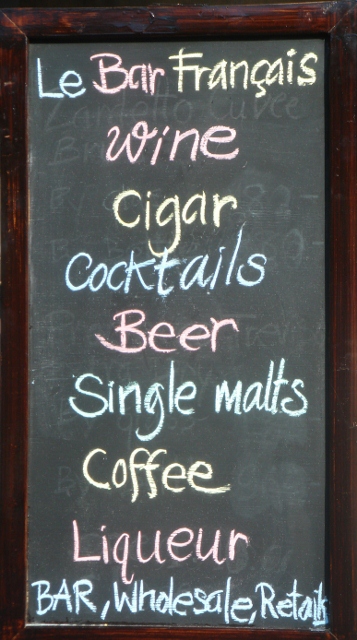 Le Bar Français
wine
Cigar
Cocktails
Beer
Single malts
Coffee
Liqueur
BAR, Wholesale, Retail